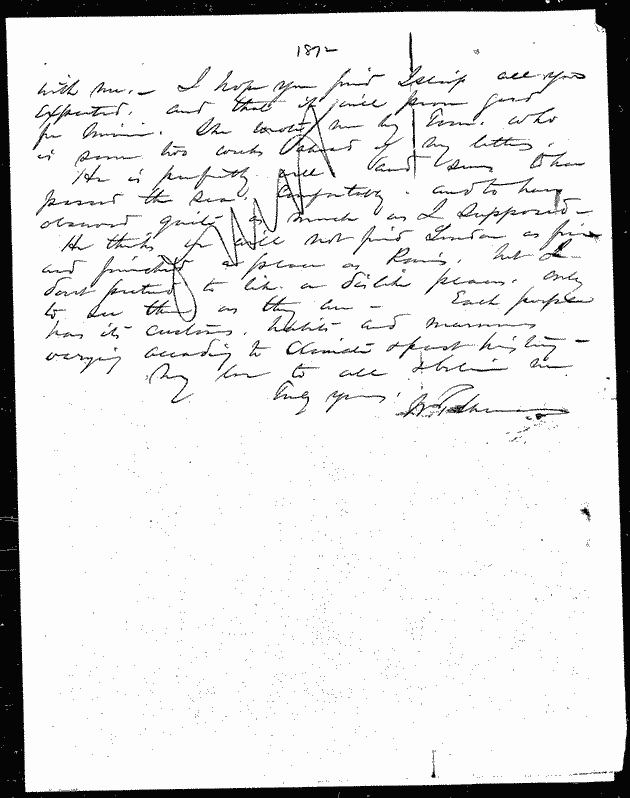 1872
with me. – I hope you find Islip all you
expected. and that it will prove good
for Minnie. She wrote me by Tom. who
is some two weeks ahead of my letters.
He is perfectly well and seems to have
passed the sea. Comfortably. and to have
observed quite as much as I supposed –
He thinks we will not find London as fine
and finished a place as Paris, but I
dont pretend to like or dislike places, only
to see them as they are – Each people
has its customs, habits and manners
varying according to Climate & past history –
My love to all & believe me
Truly yours,
W T Sherman